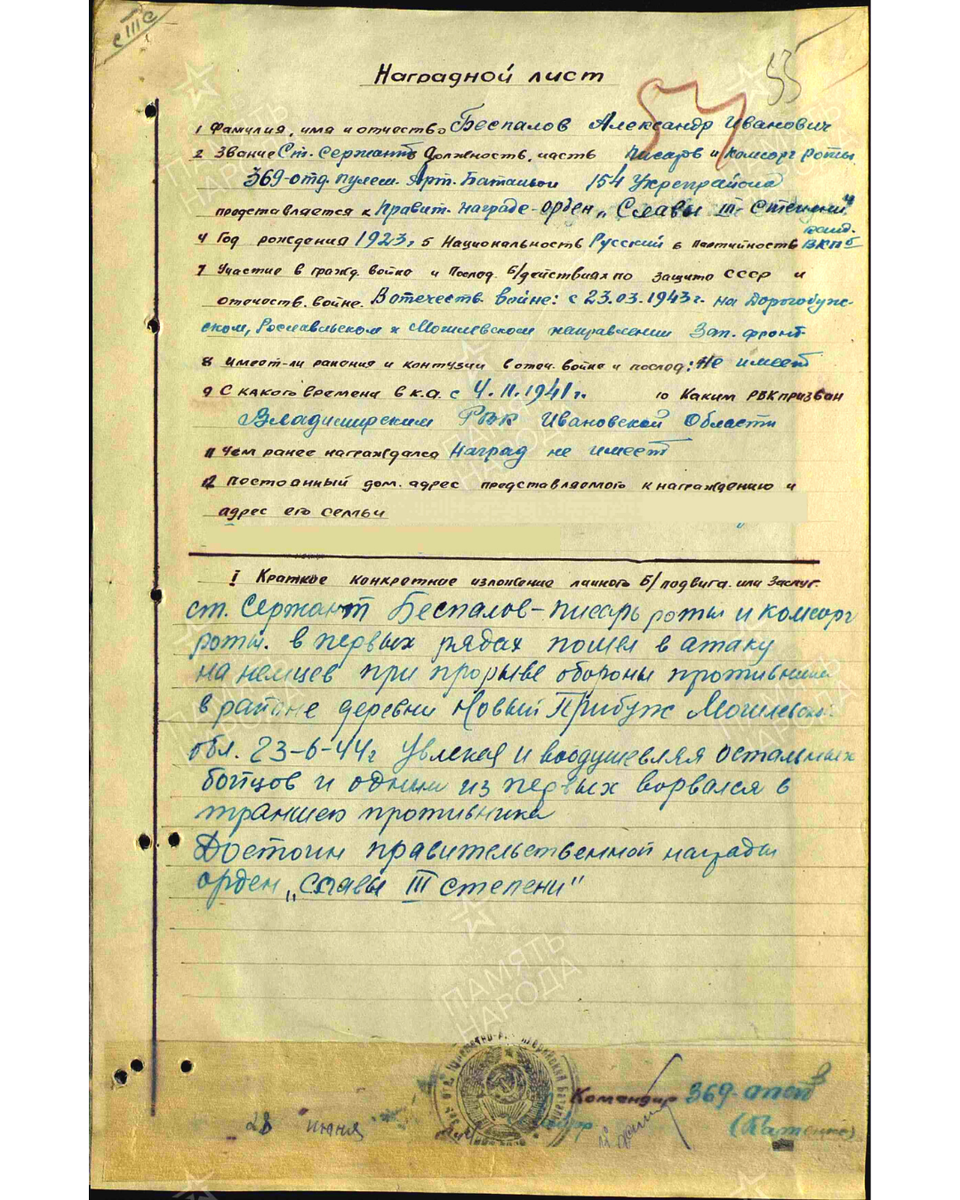 с III с
55
57
Наградной лист
1 Фамилия, имя и отчество Беспалов Александр Иванович
2 Звание Ст. Сержант 3 Должность, часть Писарь и комсорг роты
369-отд. пулем. Арт. Батальон 154 Укрепрайона
представляется к правит. награде-орден „Славы III-степени"
4 Год рождения 1923г. 5 Национальность Русский 6 Партийность канд. ВКПб
7 Участие в гражд. войне и послед. б/действиях по защите СССР и
отечеств. войне. В отечеств. войне: с 23.03.1943г. на Дорогобуж-
ском, Рославльском и Могилевском направлении Зап. фронт
8 Имеет-ли ранения и контузии в отеч. войне и послед: не имеет
9 С какого времени в к.а. с 4.11.1941г. 10 Каким РВК призван
Владимирским РВК Ивановской Области
11 Чем ранее награждался Наград не имеет
12 Постоянный дом. адрес представляемого к награждению и
адрес его семьи
I Краткое конкретное изложение личного б/подвига или заслуг.
ст. Сержант Беспалов-писарь роты и комсорг
роты. в первых рядах пошел в атаку
на немцев при прорыве обороны противника
в районе деревни Новый Прибуж Могилевской
обл. 23-6-44г увлекая и воодушевляя остальных
бойцов и одним из первых ворвался в
траншею противника
Достоин правительственной награды
орден „Славы III степени"
Командир 369-опаб
28 июня
ПАМЯТЬ НАРОДА